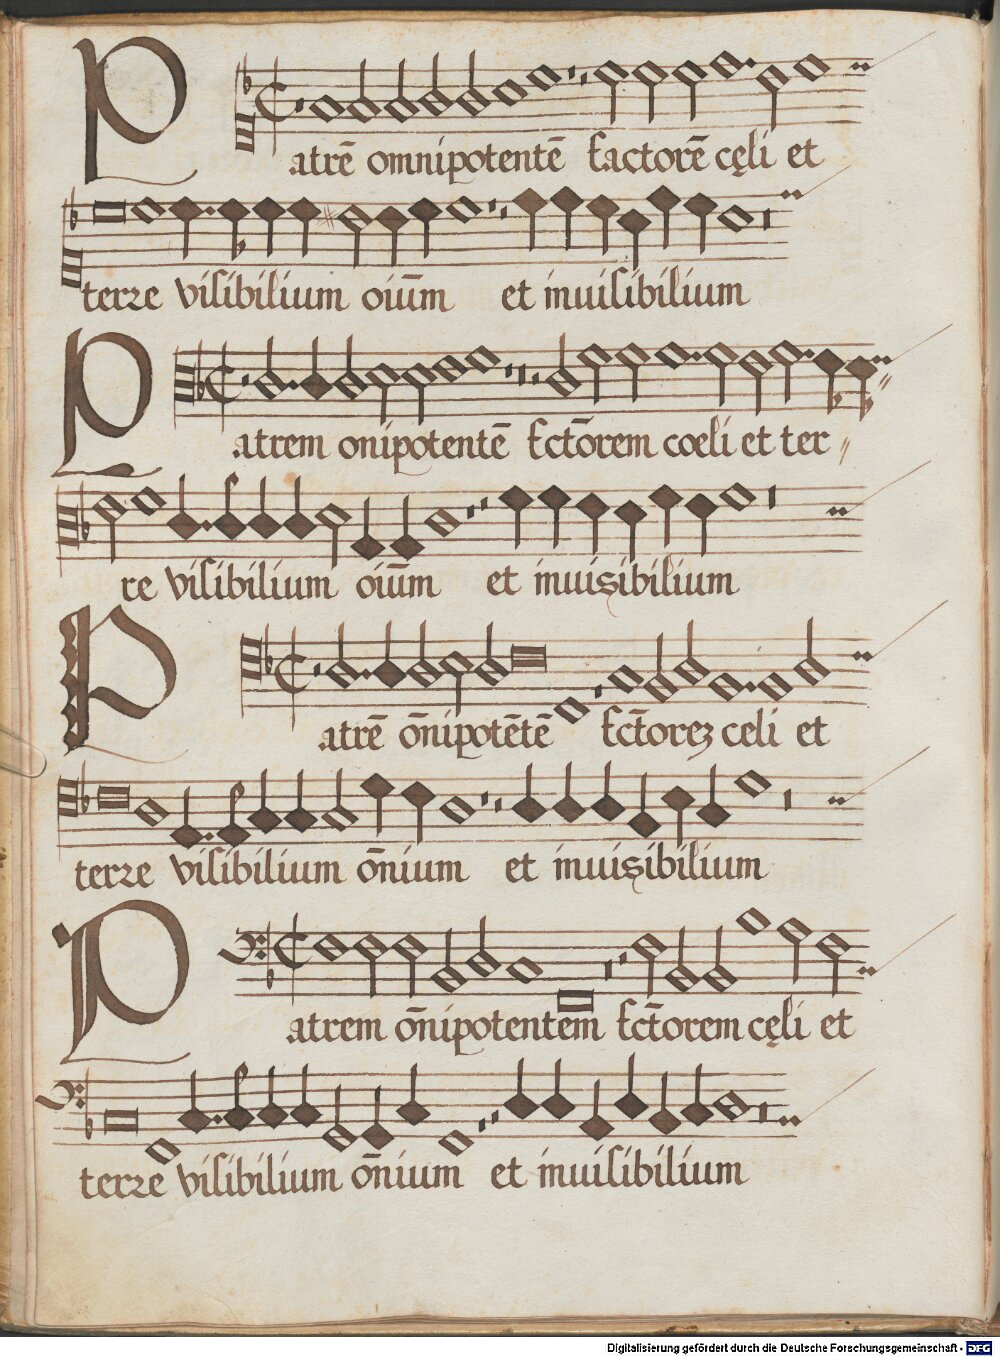 Patrē omnipotentē factorē cęli et
terre visibilium oiūm et inuisibilium
Patrem onipotentē fct̄orem coeli et ter〃
re visibilium oiūm et inuisibilium
Patrē ōnipotētē fct̄orez celi et
terre visibilium ōnium et inuisibilium
Patrem ōnipotentem fct̄orem cęli et
terre visibilium ōnium et inuisibilium
Digitalisierung gefördert durch die Deutsche Forschungsgemeinschaft - DFG